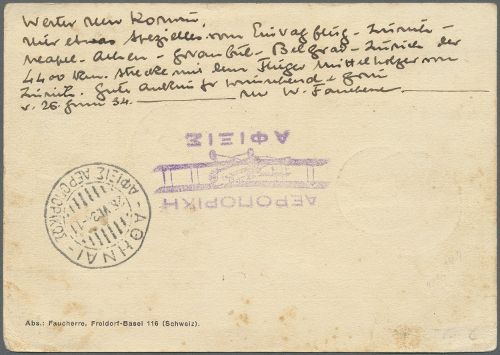 Werter Herr
hier etwas Spezielles vom Eintagflug - Zürich -
Neapel - Athen - - Belgrad - Zürich der
4400 km. Strecke mit dem Flieger Mittelholzer von
Zürich. Gute Ankunft wünschend +
v. 26. Juni 34. W. Faucherre.
ΑΕΡΟΠΟΡΙΚΗ
ΑΦΙΞΙΣ
ΑΘΗΝΑΙ
ΑΦΙΞΙΣ ΑΕΡΟΠΟΡΙΚΩΣ
Abs.: Faucherre, Freidorf-Basel 116 (Schweiz).